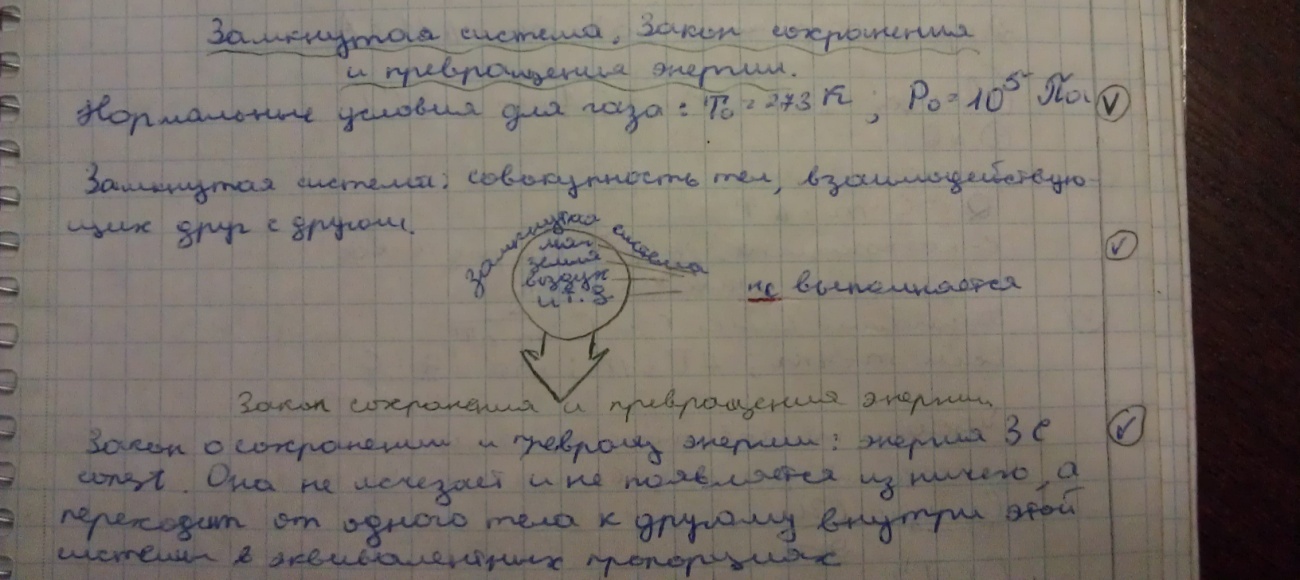 Замкнутая система. Закон сохранения
и превращения энергии.
Нормальные условия для газа: T₀ = 273 К ; P₀ = 10⁵ Па.
Замкнутая система: совокупность тел, взаимодействую-
щих друг с другом.
замкнутая система
мяч
земля
воздух
и т. д.
не
Закон сохранения и превращения энергии.
Закон о сохранении и энергии: энергия ЗС
const. Она не исчезает и не появляется из ничего, а
переходит от одного тела к другому внутри этой
системы в эквивалентных пропорциях